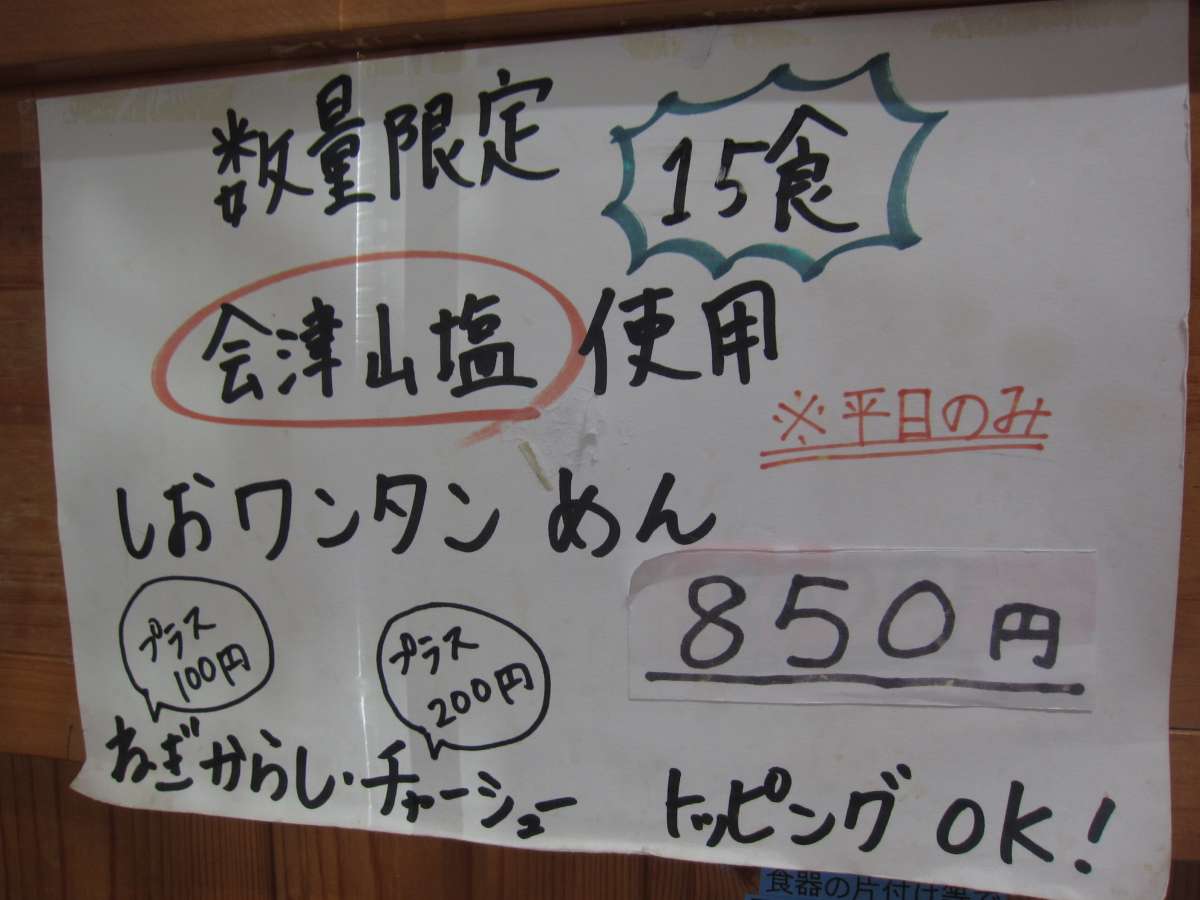 数量限定 15食
会津山塩使用
※平日のみ
しおワンタンめん
850円
プラス
100円
プラス
200円
ねぎからし・チャーシュー トッピングOK!
食器の片付け等で